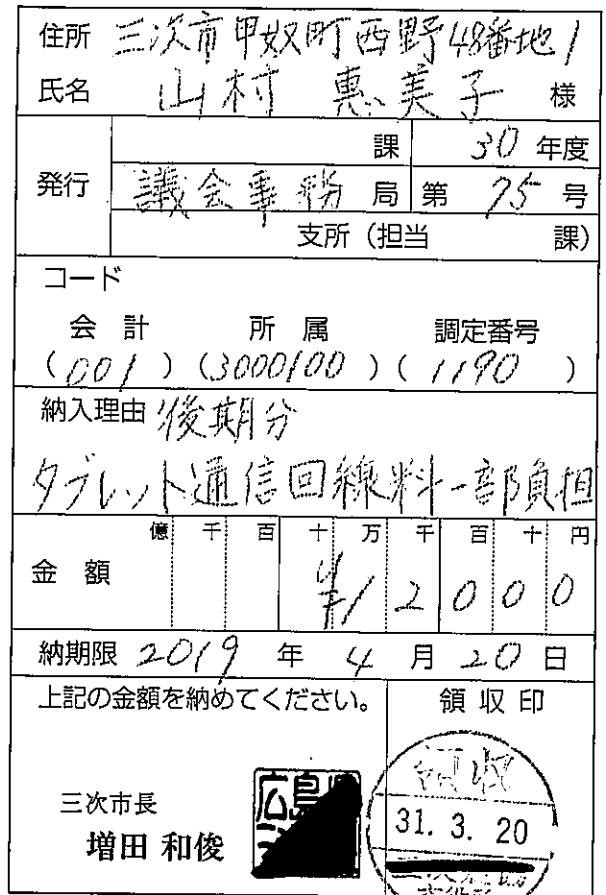 住所 三次市甲奴町西野48番地1
氏名 山村 恵美子 様
課 30 年度
発行 議会事務 局 第 75 号
支所(担当 課)
コード
会計 所属 調定番号
(001)(3000100)(1190)
納入理由 後期分
タブレット通信回線料一部負担
億 千 百 十 万 千 百 十 円
金額 ¥12000
納期限 2019 年 4 月 20 日
上記の金額を納めてください。 領収印
三次市長
増田 和俊
広島
領収
31. 3. 20